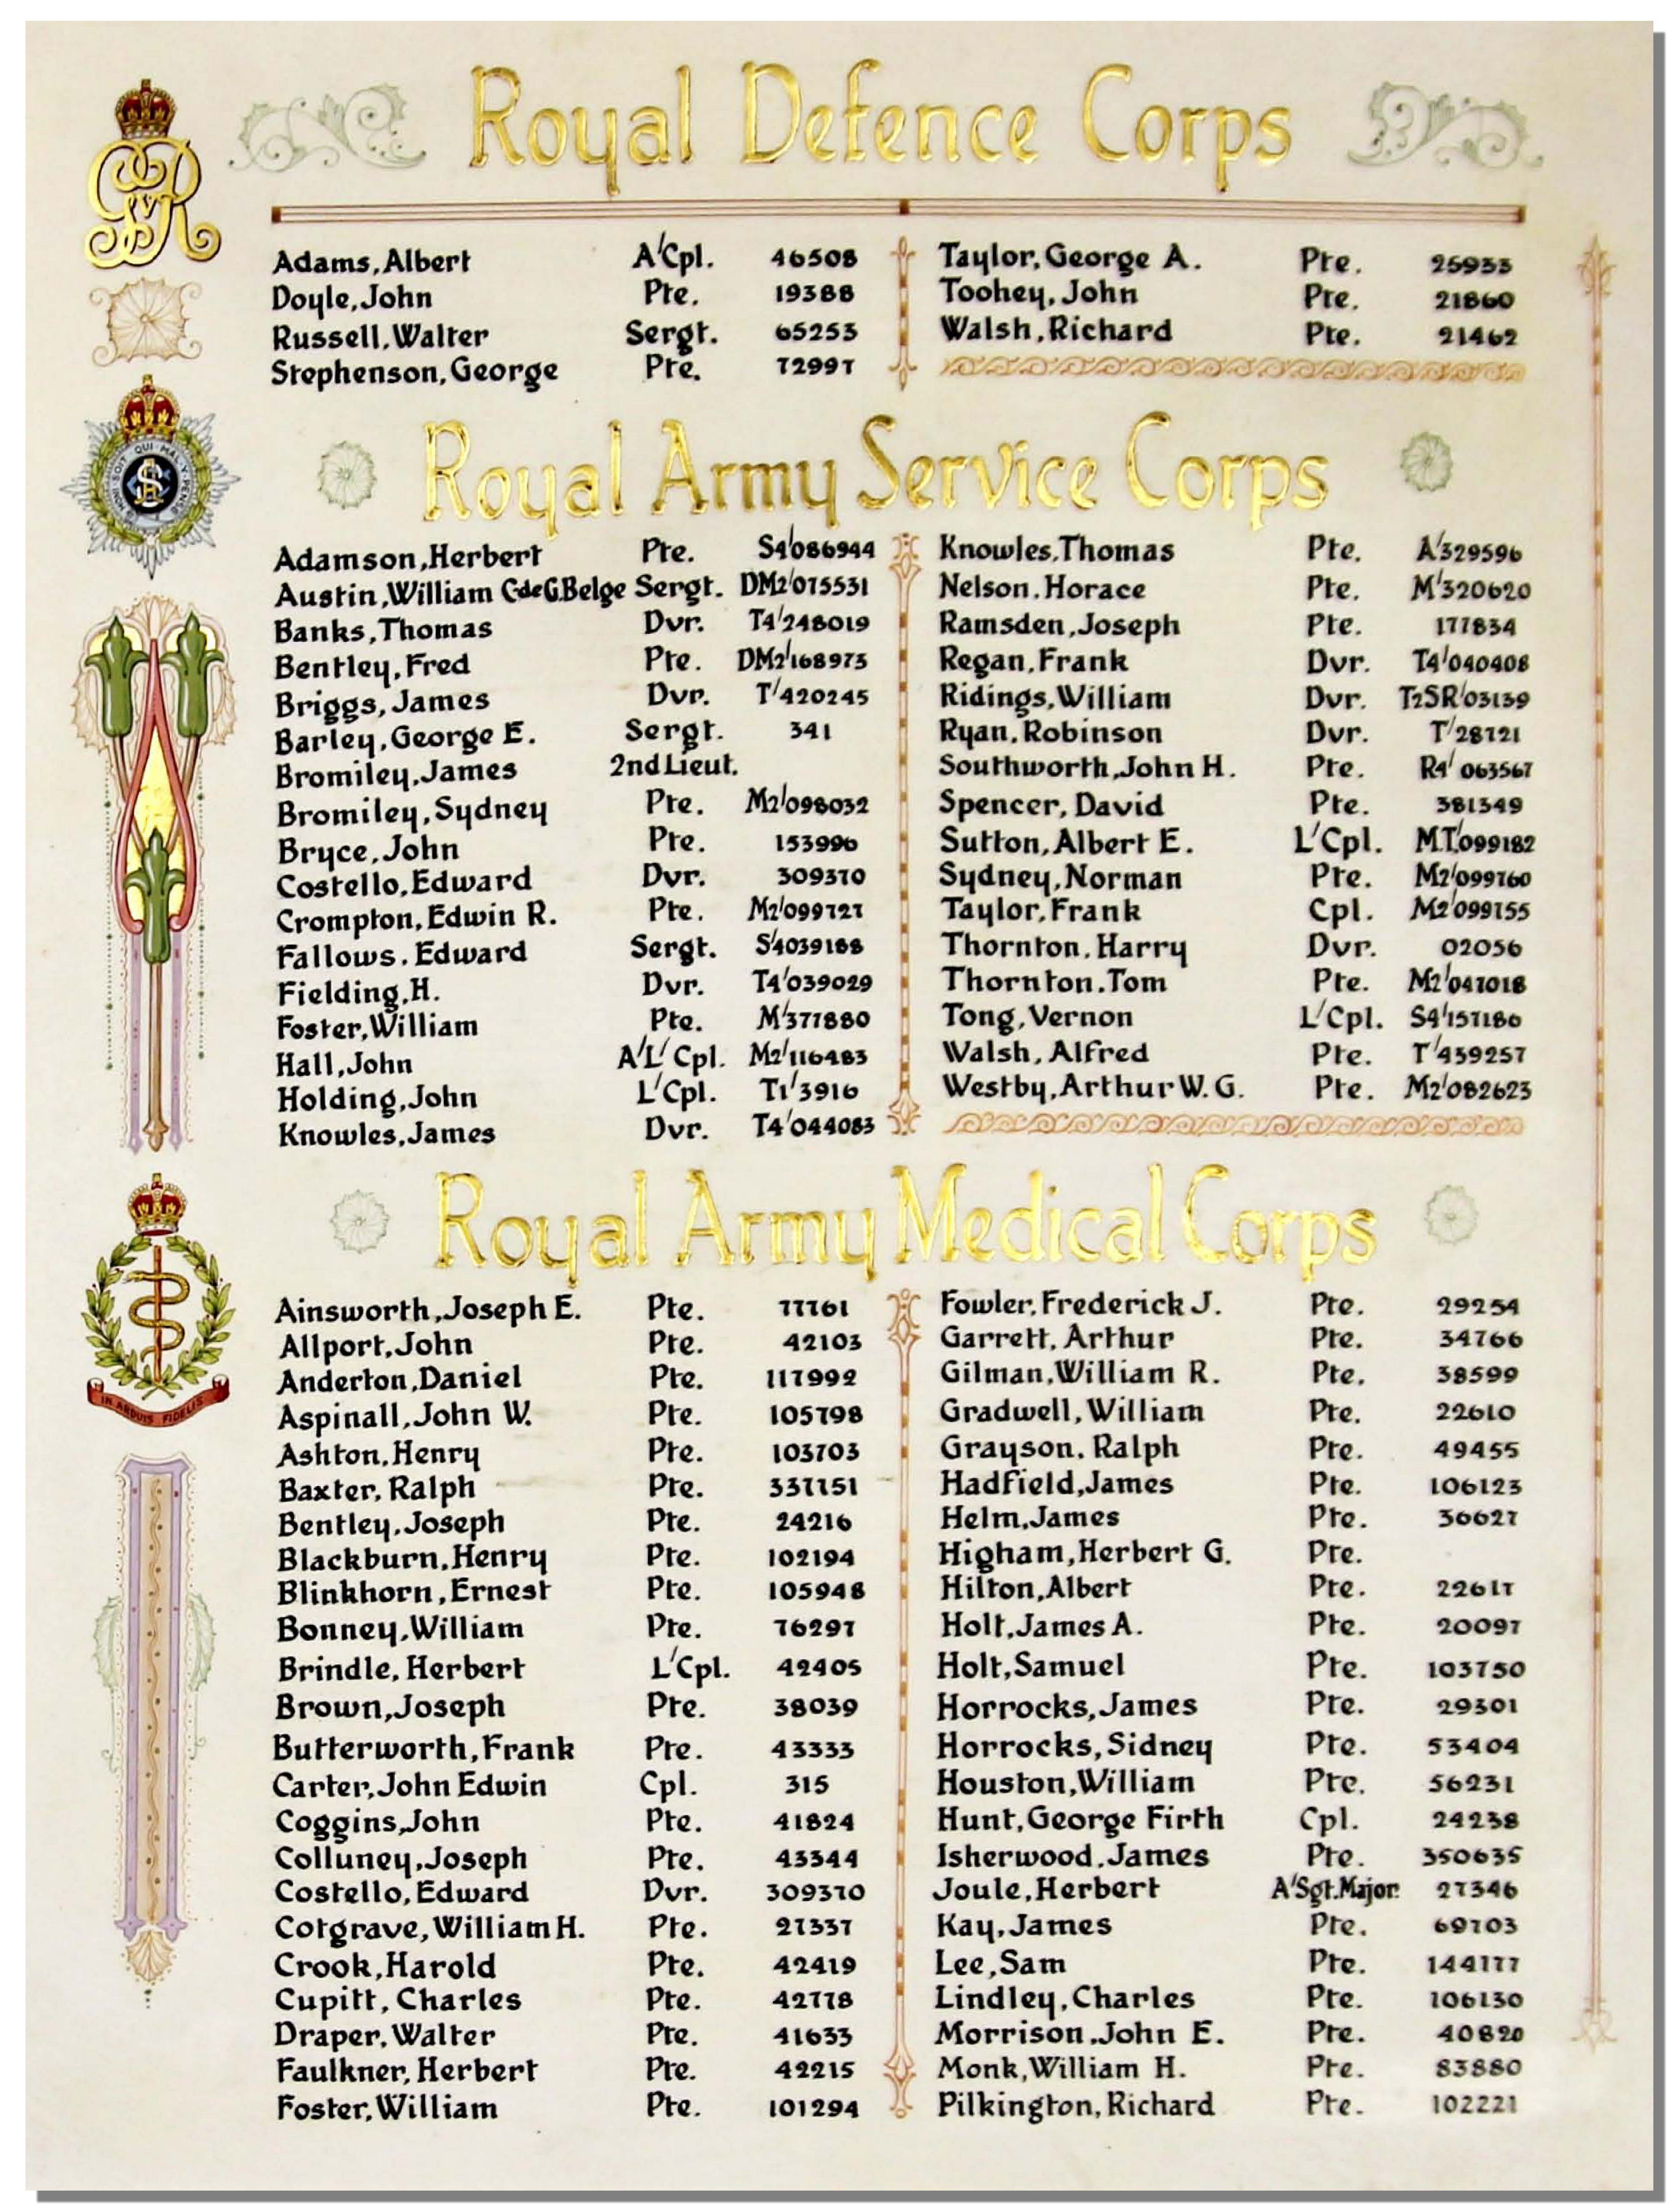 Royal Defence Corps
Adams, Albert A/Cpl. 46508
Doyle, John Pte. 19388
Russell, Walter Sergt. 65253
Stephenson, George Pte. 72997
Taylor, George A. Pte. 25933
Toohey, John Pte. 21860
Walsh, Richard Pte. 21462
HONI SOIT QUI MAL Y PENSE
Royal Army Service Corps
Adamson, Herbert Pte. S4/086944
Austin, William C de G. Belge Sergt. DM2/075531
Banks, Thomas Dvr. T4/248019
Bentley, Fred Pte. DM2/168973
Briggs, James Dvr. T/420245
Barley, George E. Sergt. 341
Bromiley, James 2nd Lieut.
Bromiley, Sydney Pte. M2/098032
Bryce, John Pte. 153996
Costello, Edward Dvr. 309370
Crompton, Edwin R. Pte. M2/099727
Fallows, Edward Sergt. S/4039188
Fielding, H. Dvr. T4/039029
Foster, William Pte. M/377880
Hall, John A/L/Cpl. M2/116483
Holding, John L/Cpl. T1/3916
Knowles, James Dvr. T4/044083
Knowles, Thomas Pte. A/329596
Nelson, Horace Pte. M/320620
Ramsden, Joseph Pte. 177834
Regan, Frank Dvr. T4/040408
Ridings, William Dvr. T2SR/03139
Ryan, Robinson Dvr. T/28721
Southworth, John H. Pte. R4/063567
Spencer, David Pte. 381349
Sutton, Albert E. L/Cpl. M.T./099182
Sydney, Norman Pte. M2/099760
Taylor, Frank Cpl. M2/099755
Thornton, Harry Dvr. 02056
Thornton, Tom Pte. M2/047018
Tong, Vernon L/Cpl. S4/157186
Walsh, Alfred Pte. T/459257
Westby, Arthur W. G. Pte. M2/082623
IN ARDUIS FIDELIS
Royal Army Medical Corps
Ainsworth, Joseph E. Pte. 77761
Allport, John Pte. 42103
Anderton, Daniel Pte. 117992
Aspinall, John W. Pte. 105798
Ashton, Henry Pte. 103703
Baxter, Ralph Pte. 337151
Bentley, Joseph Pte. 24216
Blackburn, Henry Pte. 102194
Blinkhorn, Ernest Pte. 105948
Bonney, William Pte. 76297
Brindle, Herbert L/Cpl. 42405
Brown, Joseph Pte. 38039
Butterworth, Frank Pte. 43333
Carter, John Edwin Cpl. 315
Coggins, John Pte. 41824
Colluney, Joseph Pte. 43344
Costello, Edward Dvr. 309370
Cotgrave, William H. Pte. 27337
Crook, Harold Pte. 42419
Cupitt, Charles Pte. 42778
Draper, Walter Pte. 41633
Faulkner, Herbert Pte. 42215
Foster, William Pte. 101294
Fowler, Frederick J. Pte. 29254
Garrett, Arthur Pte. 34766
Gilman, William R. Pte. 38599
Gradwell, William Pte. 22610
Grayson, Ralph Pte. 49455
Hadfield, James Pte. 106123
Helm, James Pte. 36627
Higham, Herbert G. Pte.
Hilton, Albert Pte. 22617
Holt, James A. Pte. 20097
Holt, Samuel Pte. 103750
Horrocks, James Pte. 29301
Horrocks, Sidney Pte. 53404
Houston, William Pte. 56231
Hunt, George Firth Cpl. 24238
Isherwood, James Pte. 350635
Joule, Herbert A/Sgt. Major. 27346
Kay, James Pte. 69703
Lee, Sam Pte. 144177
Lindley, Charles Pte. 106130
Morrison, John E. Pte. 40820
Monk, William H. Pte. 83880
Pilkington, Richard Pte. 102221